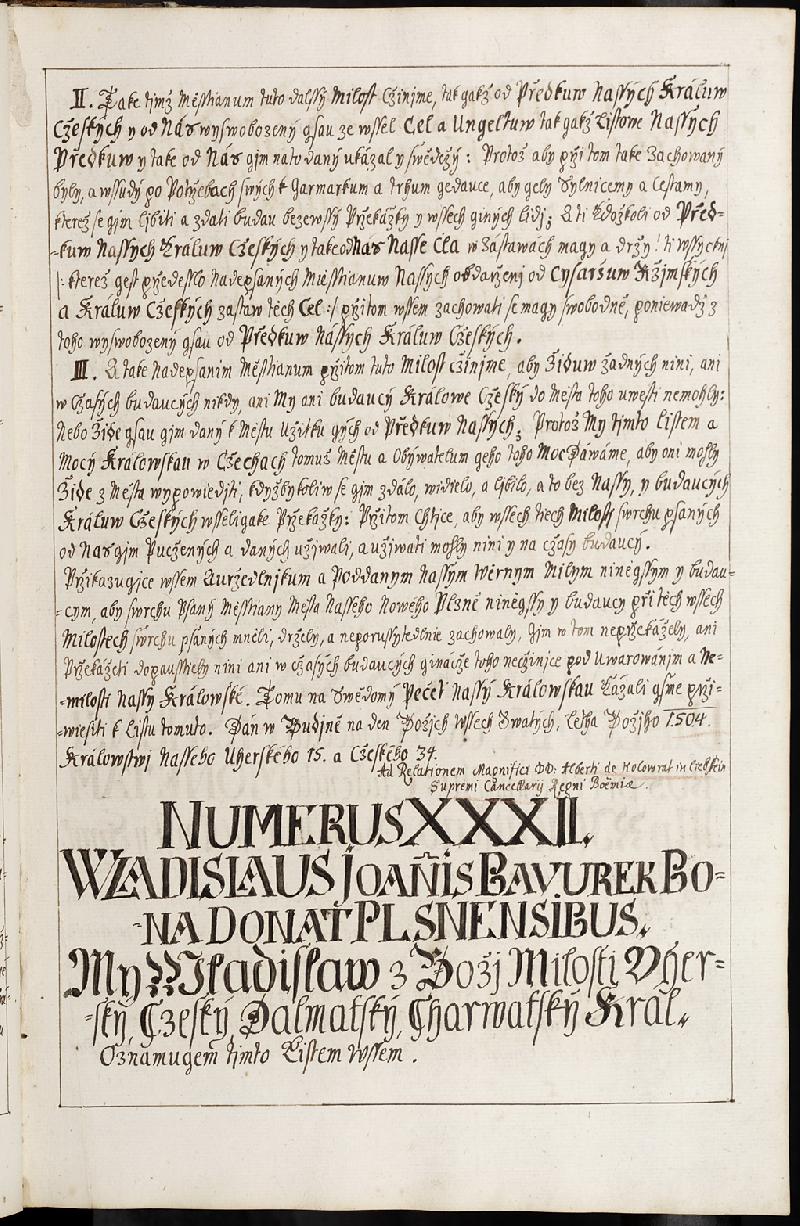 II. Take tjmž Měsstianum tuto dalssý Milost Cžinjme, tak gakž od Předkuw Nassých Králuw
Cžeských y od Nás wyswobozený gsau ze wssel Cel a Ungeltuw tak gakž Listowe Nassých
Předkuw y take od Nás gjm na to daný ukázal y swědčžý: Protož aby přži tom take Zachowaný
byly, a wssudý po Potržebach swých k Garmarkum a Trhum gedauce, aby gely Sylnicemy a Cestamy,
kterež se gjm ljbiti a zdati budau bezewssý Přžekážky y wssech giných lidj; A ti kdožkoli od Před-
-kuw Nassych Králuw Cžeských y take od Nás Nasse Cla w Zástawách magy a držý! ti wssyckni
/: kterež gest předesslo nadepsaných Měsstianuw Nassých obdarženj od Cysaršuw Ržjmských
a Králuw Cžeských zastaw těch Cel :/ přžitom wssem zachowati se magy swobodně, poniewadž z
toho wyswobozený gsau od Předkuw Nássych Králuw Cžeských.
III. A take Nadepsanim Měsstianum přžitom tuto Milost cžinjme, aby Židuw žadných nini, ani
w cžasých budaucých nikdy, ani My ani budaucý Králowe Cžeský do Města toho uwesti nemohly:
Nebo Žide gsau gjm daný k Městu Užitku gých od Předkuw Nassých; Protož My tjmto Listem a
Mocý Králowskau w Cžechach tomuž Městu a Obywatelum geho toho Moc Dawáme, aby oni mohly
Žide z Města wypowiedjti, kdyžbykoliw se gjm zdálo, widělo, a ljbilo, a to bez Nassý, y budaucých
Králuw Cžeských wsseligake Přžekážky: Přžitom Chtjce, aby wssech tiech Milostj swrchu psaných
od Nás gjm Pucžených a daných užjwali, a užjwati mohly nini y na cžasy budaucý.
Přžikazugjce wssem Auržednjkum a Poddanym Nassým Wěrnym Milym niněgssým y budau-
-cym, aby swrchu Psaný Měsstiany Města Nasseho Noweho Plzně niněgssý y budaucy při těch wssech
Milostech swrchu psaných měli, drželý, a neporussytedlnie zachowaly, gjm w tom nepřžekáželý, ani
Přžekážeti dopausstiely nini ani w cžasých budaucých ginácže toho necžinjce pod Uwarowánjm a Ne-
-milosti Nassý Králowské. Tomu na Swědomý Pečet Nassý Králowskau Kázali gsme přži-
-wiesiti k Listu tomuto. Dán w Budjně na den Božjch wssech Swatých, Letha Božjho 1504.
Králowstwj Nasseho Uherského 15. a Cžeského 34.
Ad Relationem Magnifici DD: Alberti de Kolowrat in Liebstein
Supremi Cancellarij Regni Boëmiæ.
NUMERUS XXXII.
WLADISLAUS JOAÑIS BAVUREK BO-
-NA DONAT PLSNENSIBUS.
My Wladislaw z Božj Milosti Vher-
-ský, Cžeský, Dalmatský, Charwatský Král.
Oznamugem tjmto Listem wssem.